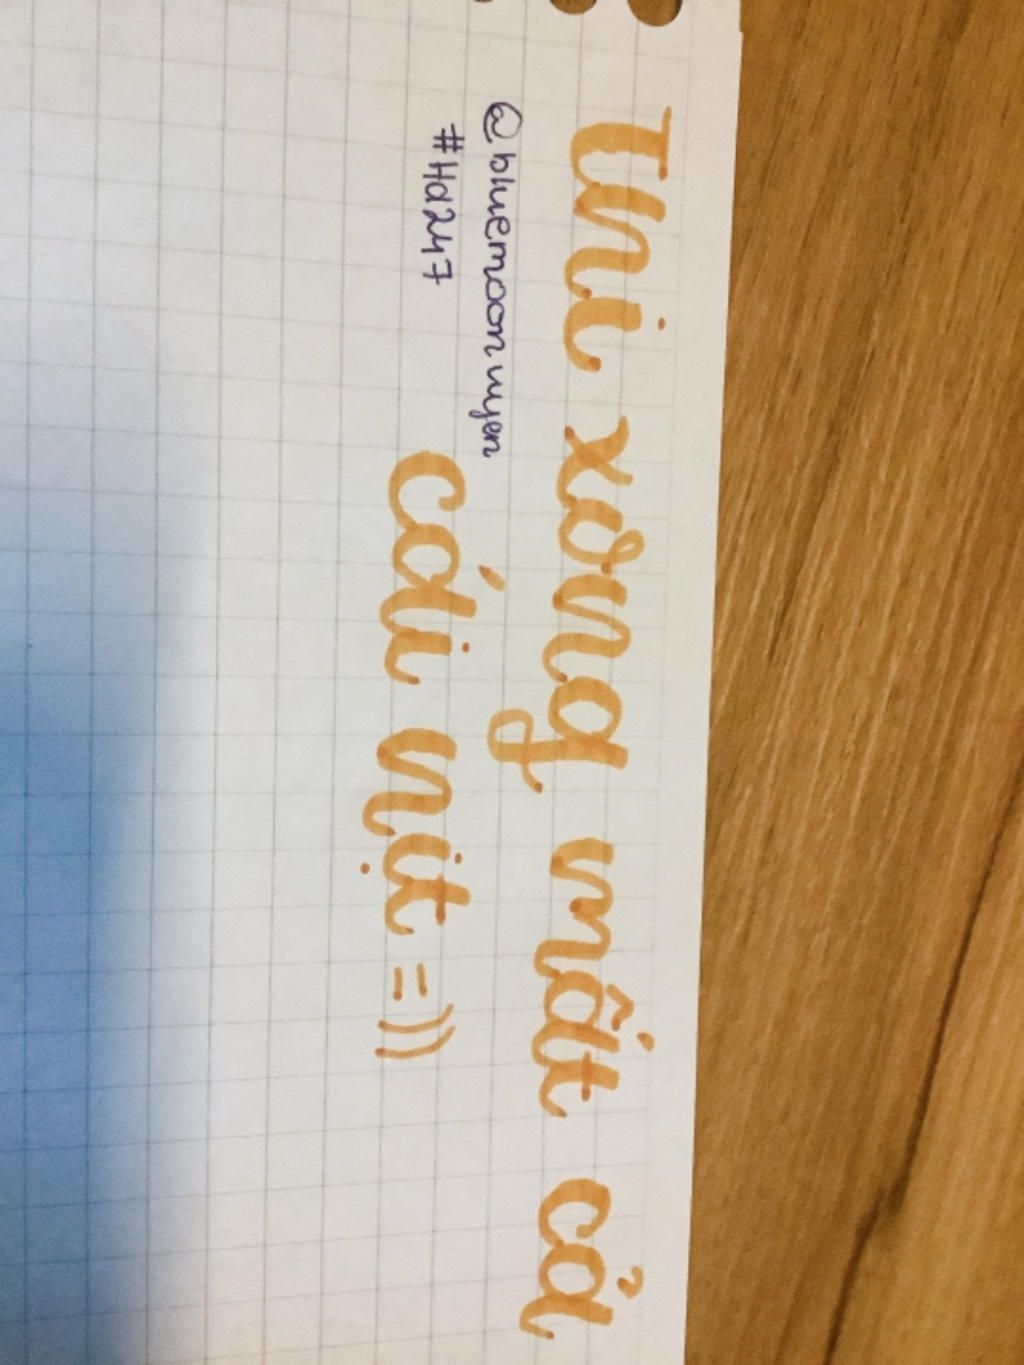 Thi xong mất cả
cái nịt =))
@bluemoonwyen
#Hd247